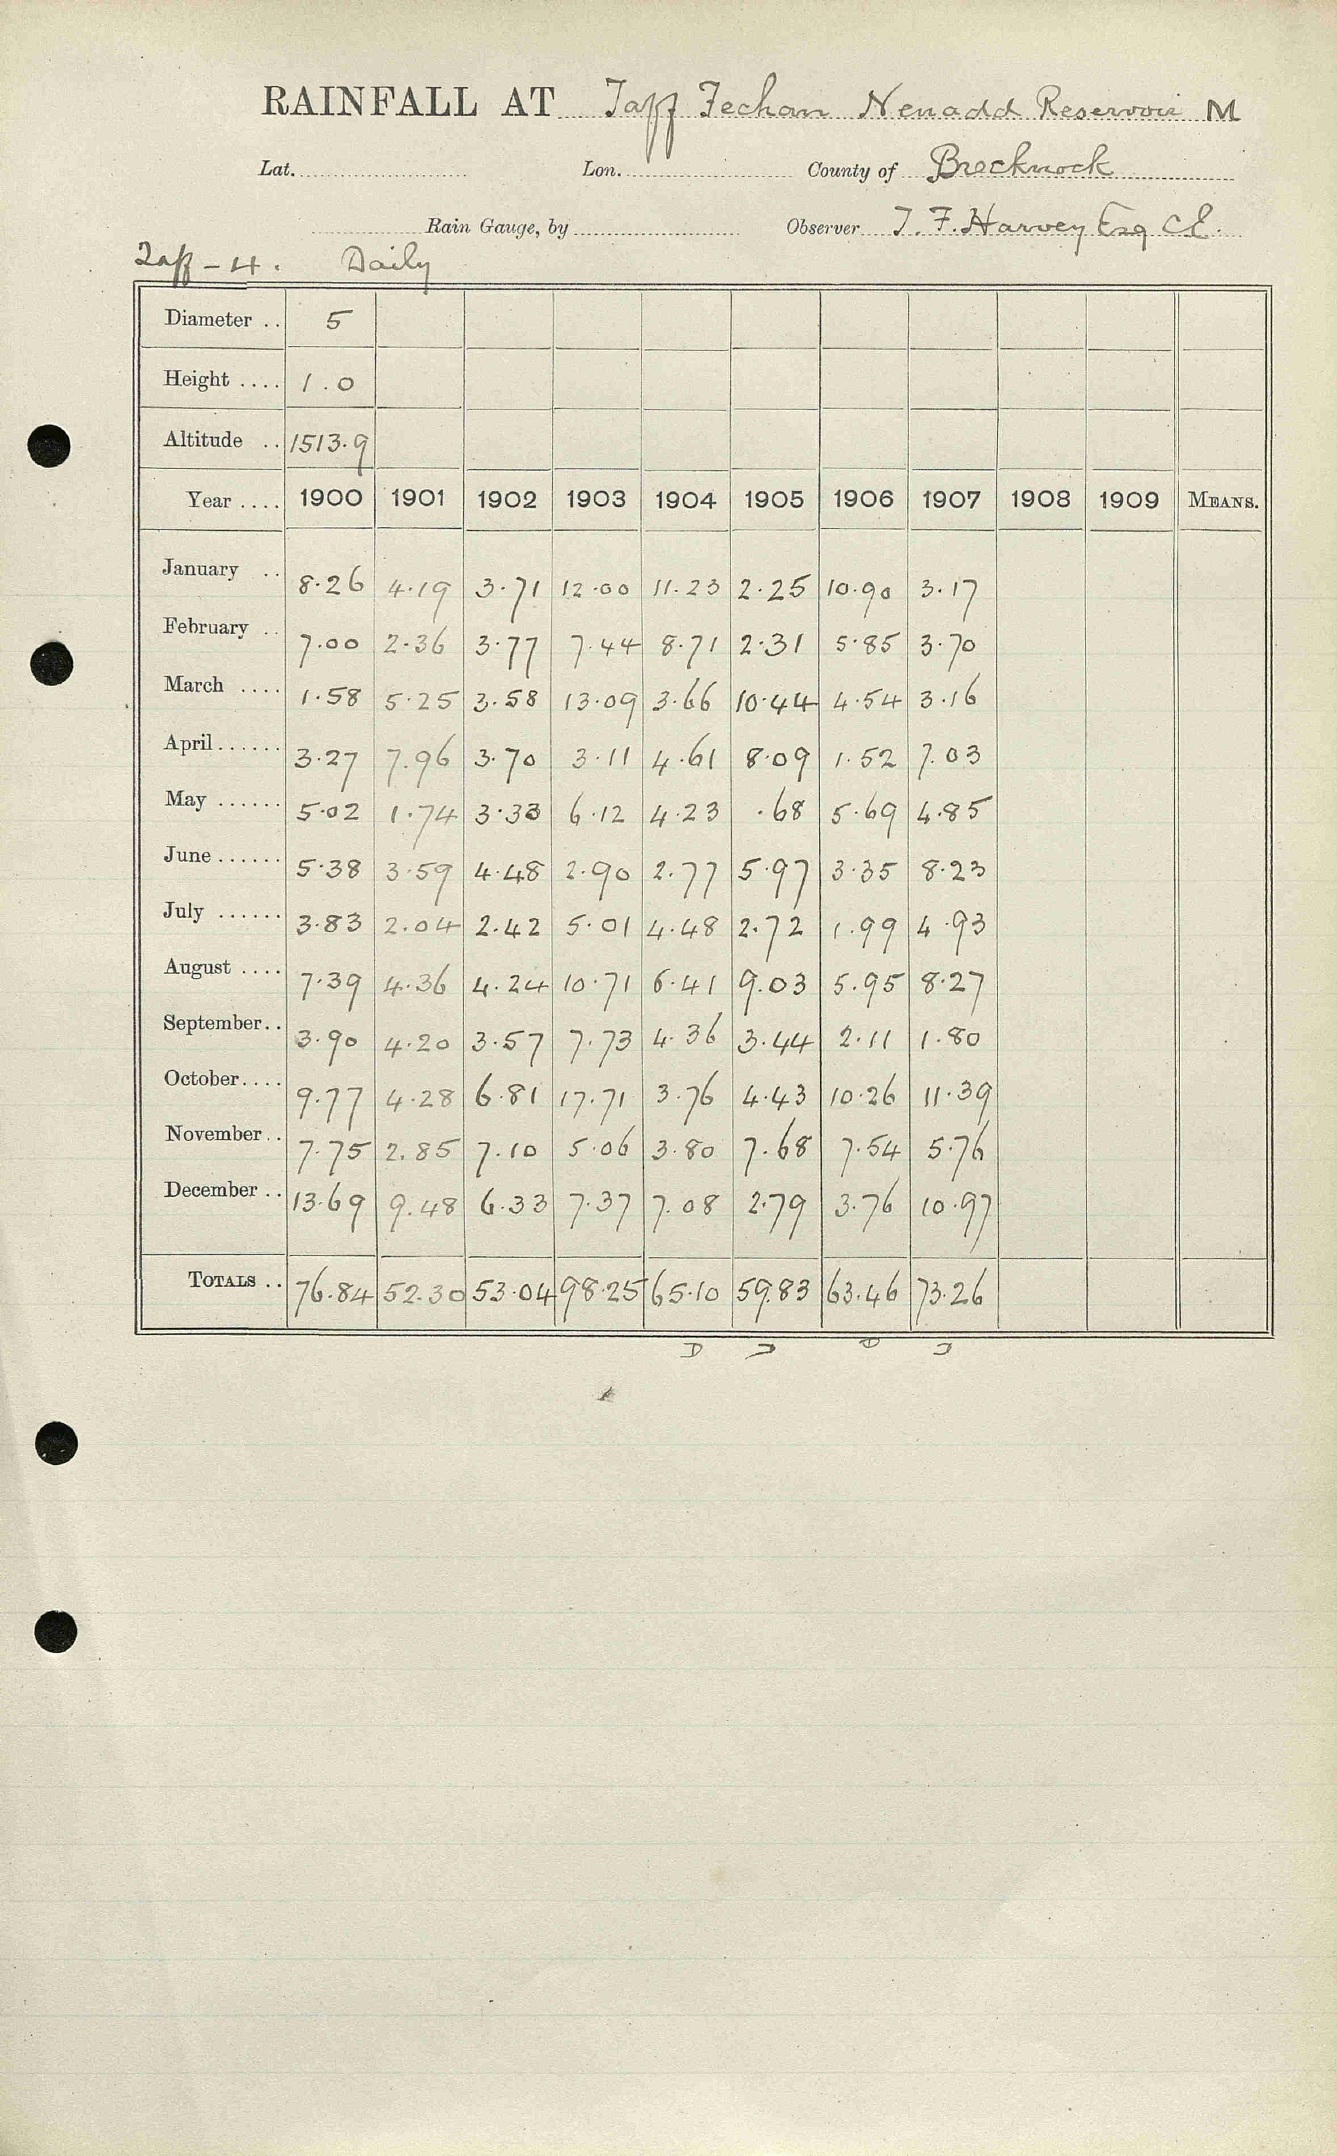 RAINFALL AT Taff Fechan Nenadd Reservoir M
Lat. Lon. County of Brecknock
Rain Gauge, by Observer T. F. Harvey Esq CE.
Taff - 4. Daily
Diameter .. 5
Height .... 1.0
Altitude .. 1513.9
Year .... 1900 1901 1902 1903 1904 1905 1906 1907 1908 1909 MEANS.
January .. 8.26 4.19 3.71 12.00 11.23 2.25 10.90 3.17
February .. 7.00 2.36 3.77 7.44 8.71 2.31 5.85 3.70
March .... 1.58 5.25 3.58 13.09 3.66 10.44 4.54 3.16
April...... 3.27 7.96 3.70 3.11 4.61 8.09 1.52 7.03
May ...... 5.02 1.74 3.33 6.12 4.23 .68 5.69 4.85
June...... 5.38 3.59 4.48 2.90 2.77 5.97 3.35 8.23
July ...... 3.83 2.04 2.42 5.01 4.48 2.72 1.99 4.93
August .... 7.39 4.36 4.24 10.71 6.41 9.03 5.95 8.27
September.. 3.90 4.20 3.57 7.73 4.36 3.44 2.11 1.80
October.... 9.77 4.28 6.81 17.71 3.76 4.43 10.26 11.39
November.. 7.75 2.85 7.10 5.06 3.80 7.68 7.54 5.76
December .. 13.69 9.48 6.33 7.37 7.08 2.79 3.76 10.97
TOTALS .. 76.84 52.30 53.04 98.25 65.10 59.83 63.46 73.26
D D D D